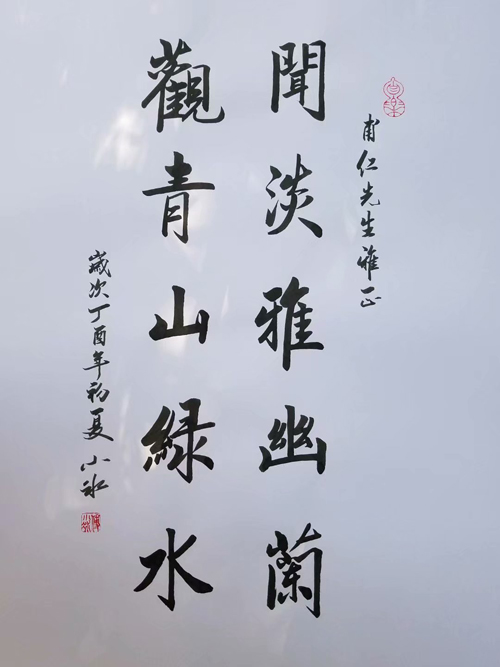 甫仁先生雅正
聞淡雅幽蘭
觀青山緑水
歲次丁酉年初夏 小冰